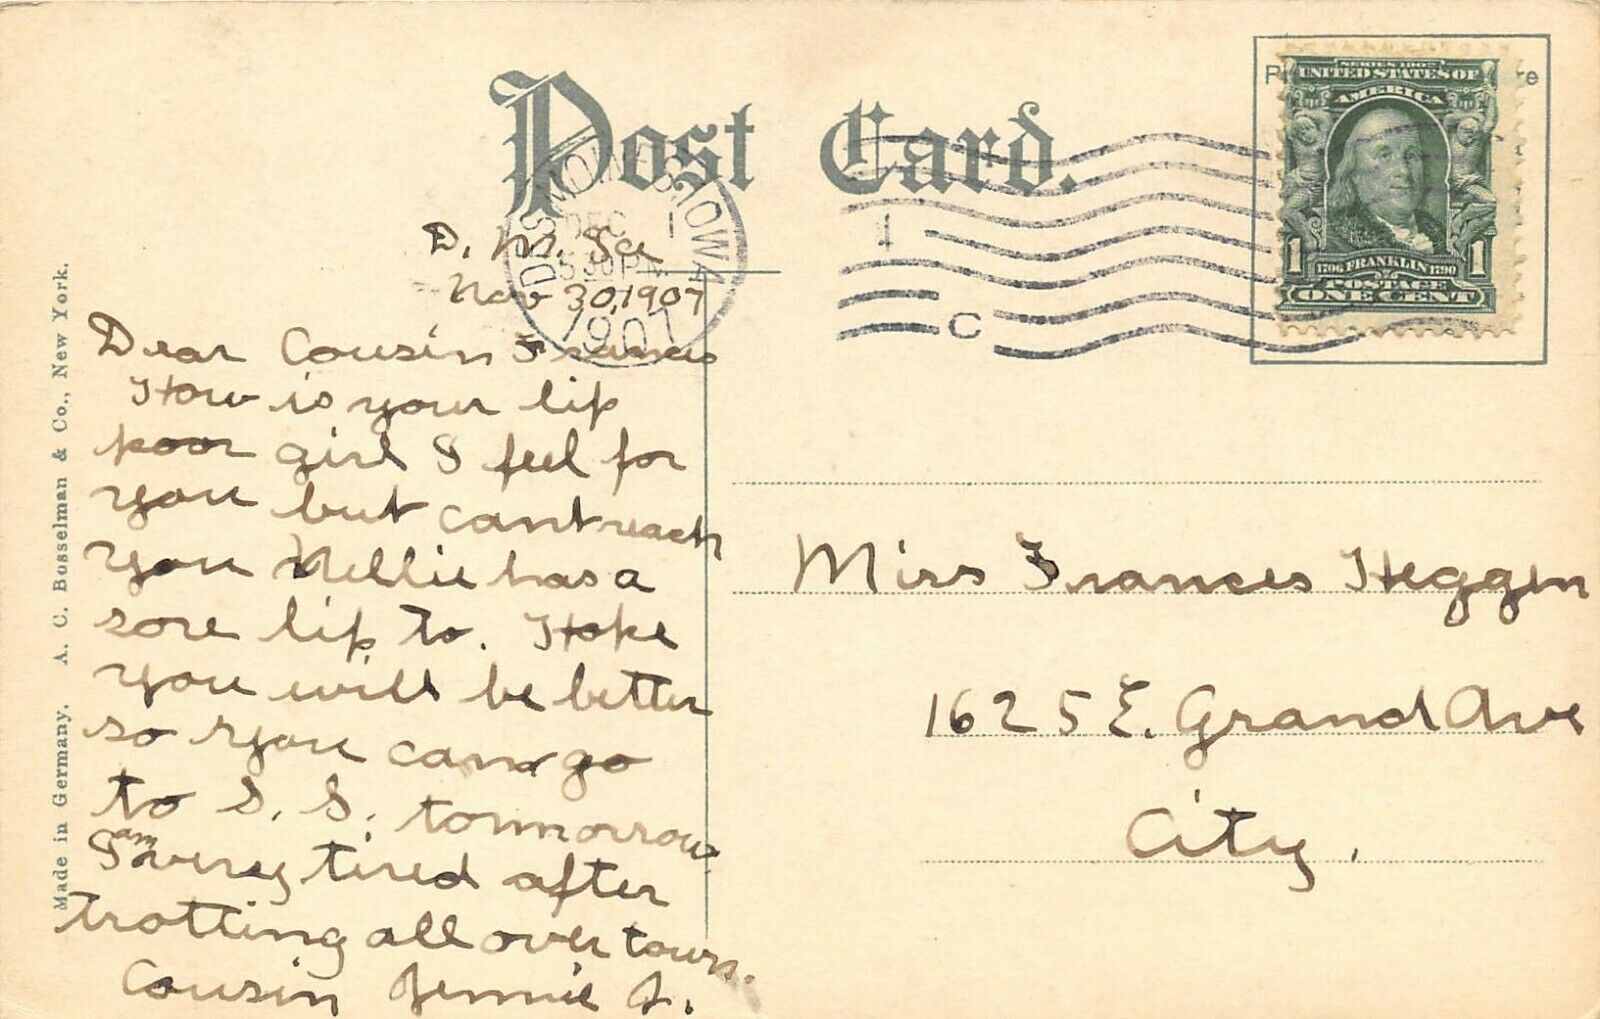 Post Card.
DES MOINES, IOWA
DEC 1
530 P.M.
1907
1
C
SERIES 1902
UNITED STATES OF
AMERICA
1 1
1706 FRANKLIN 1790
POSTAGE
ONE CENT
Made in Germany. A. C. Bosselman & Co., New York.
D. M. Ia
Nov 30, 1907
Dear Cousin Frances
How is your lip
poor girl I feel for
you but cant reach
you Nellie has a
sore lip to. Hope
you will be better
so you can go
to S. S. tomorrow
I am very tired after
trotting all over town.
Cousin Jennie J.
Miss Frances Heggen
1625 E. Grand Ave
City.